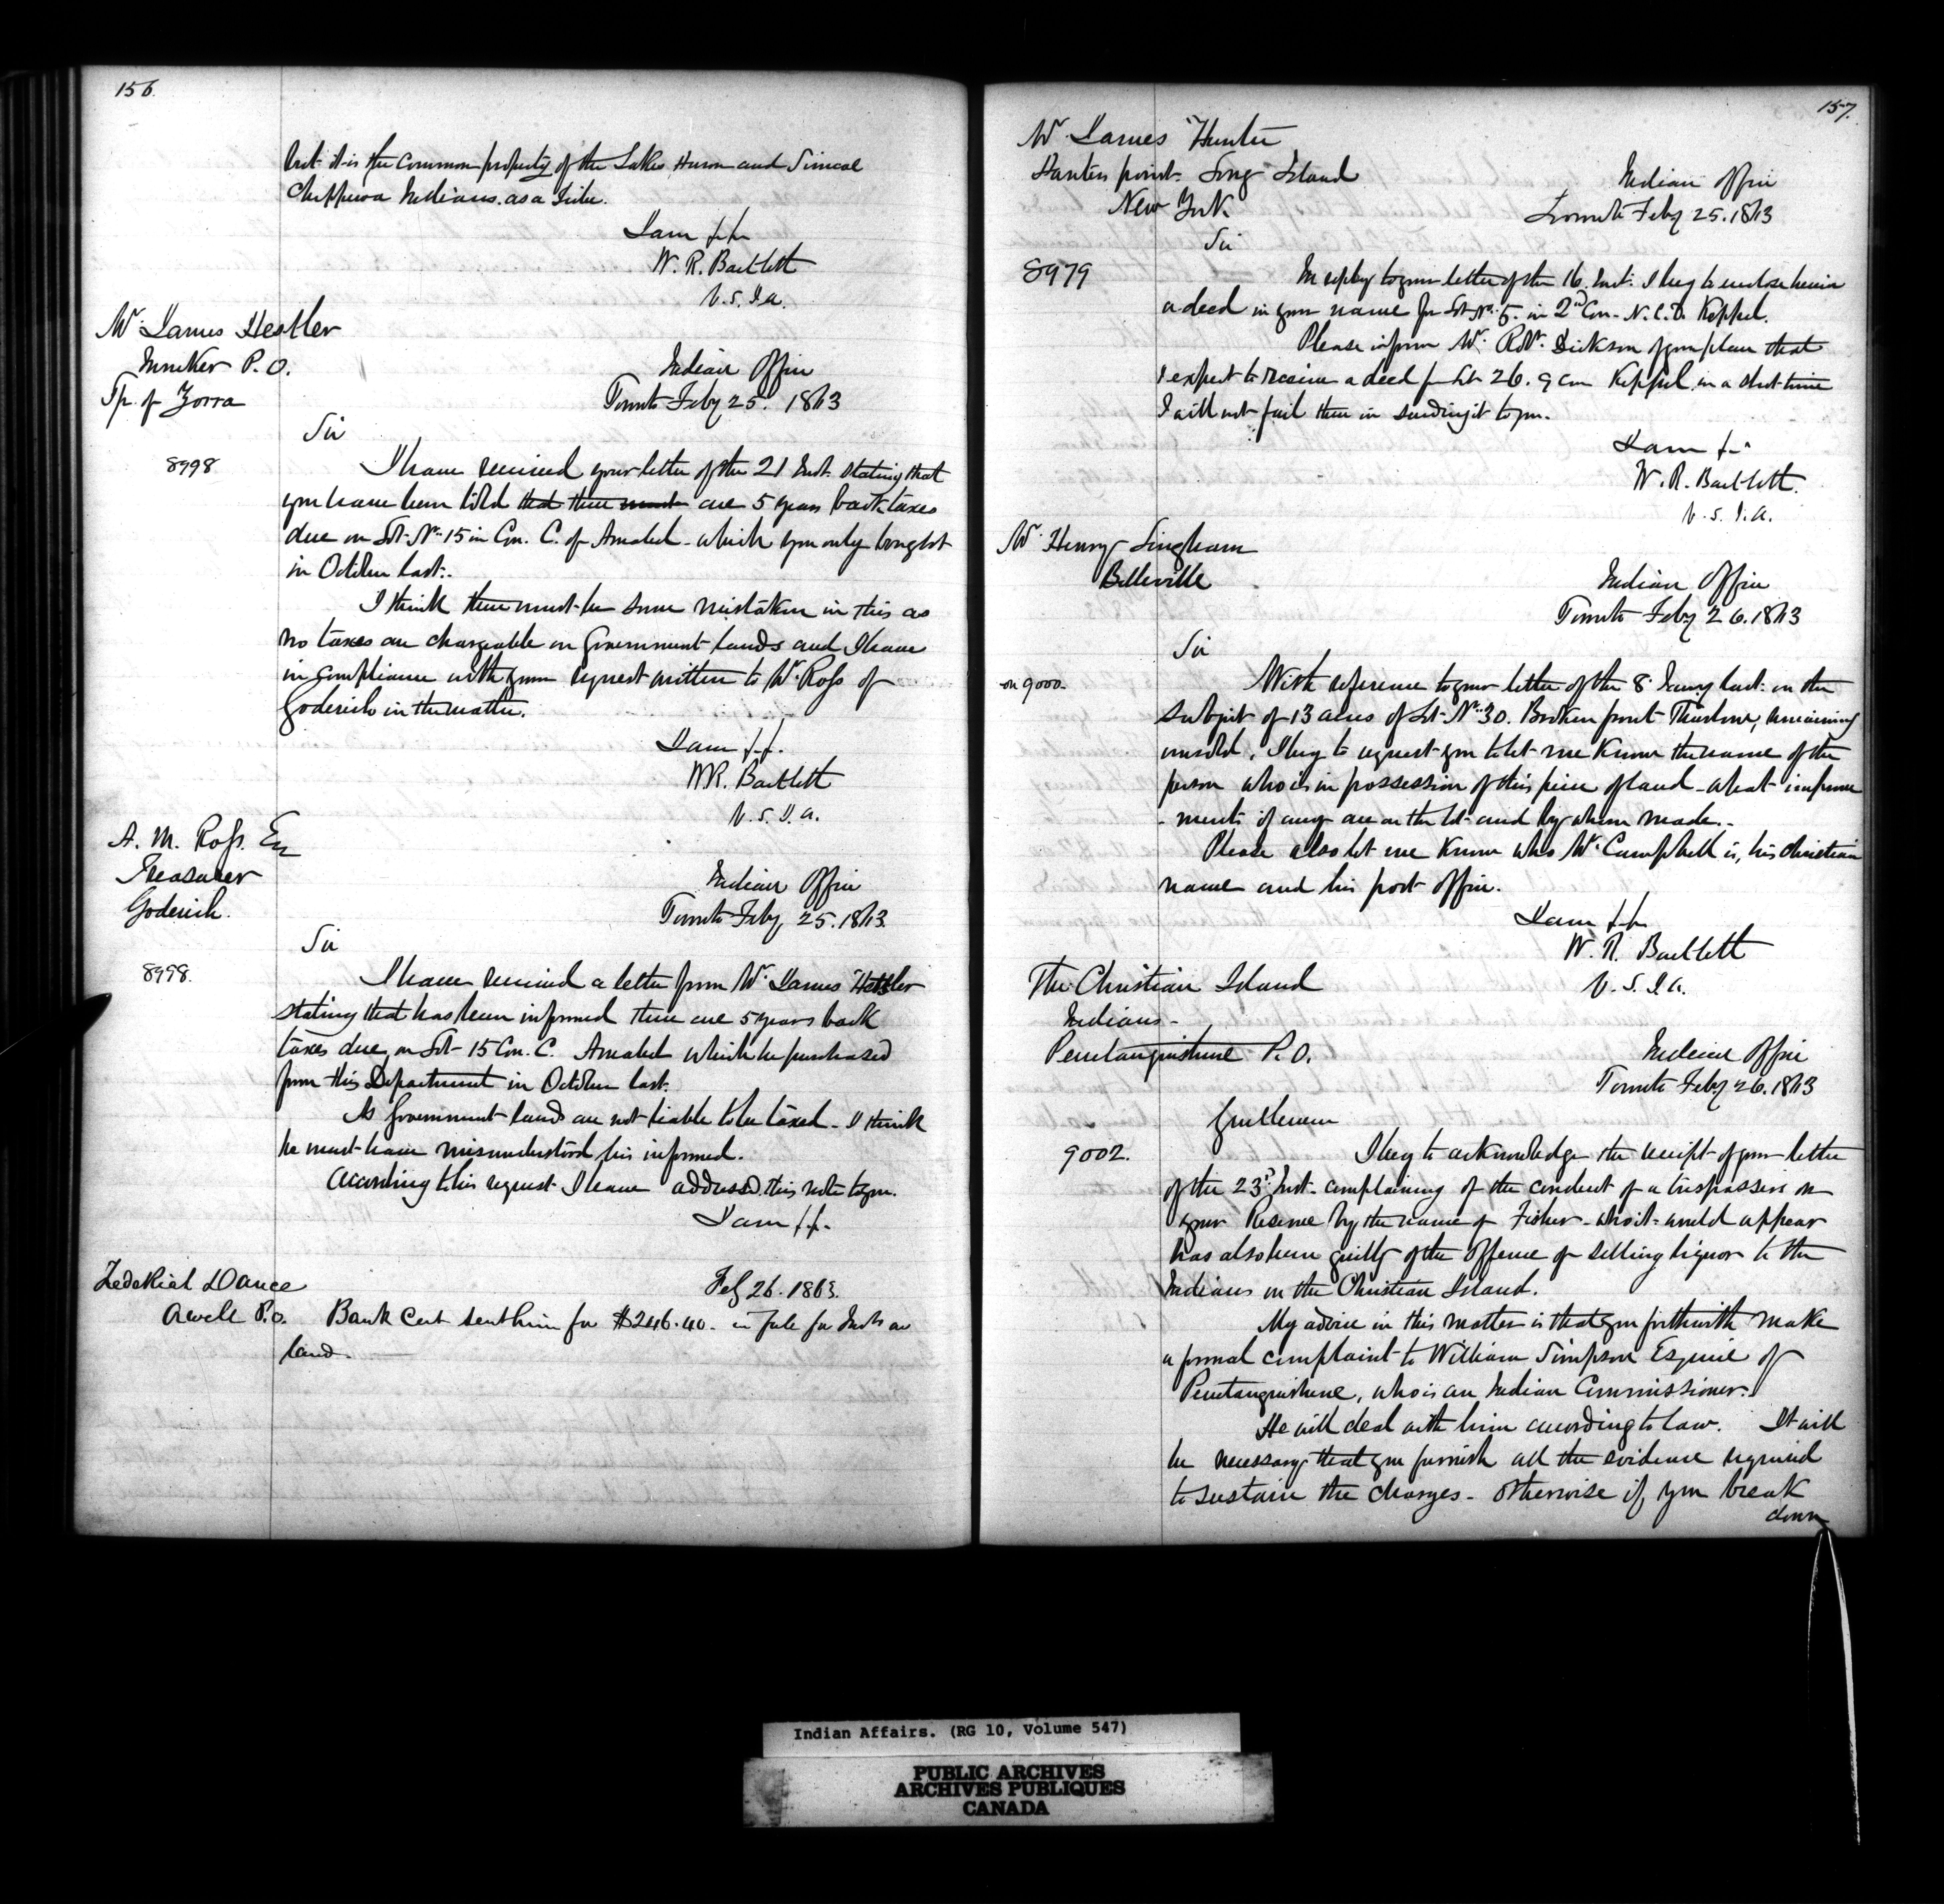 156
but it is the common property of the Lakes Huron and Simcoe
Chippewa Indians as a Tribe.
I am &c
W. R. Bartlett
V. S. I. A.
Mr. James Hestler
P. O.
Tp. of Zorra
Indian Office
Toronto Feby 25. 1863
Sir
8998
I have received your letter of the 21 Inst. stating that
you have been told that there must are 5 years back taxes
due on Lot No. 15 in Con. C. of Amabel - which you only bought
in October last.
I think there must be some mistake in this as
no taxes are chargeable on Government Lands and I have
in compliance with your request written to Mr. Ross of
Goderich in the matter.
I am &c.
W R. Bartlett
V. S. I. A.
A. M. Ross. Esq
Treasurer
Goderich.
Indian Office
Toronto Feby 25. 1863.
Sir
8998.
I have received a letter from Mr. James Hestler
stating that has been informed there are 5 years back
taxes due on Lot 15 Con. C. Amabel which he purchased
from this Department in October last.
As Government lands are not liable to be taxed - I think
he must have misunderstood his informed.
According to his request I have addressed this note to you.
I am &c.
Zedekiah Dance
P.O.
Feby 26. 1863.
Bank Cert sent him for $246.40. in full for Insts on
land.
157.
Mr. James Hunter
Hunters point. Long Island
New York
Indian Office
Toronto Feby 25. 1863
Sir
8979
In reply to your letter of the 16. Inst. I beg to enclose herein
a deed in your name for Lot No. 5. in 2nd Con. N. C. D. Keppel.
Please inform Mr. Robt. Dickson of your place that
I expect to receive a deed for Lot 26. 9 Con Keppel in a short time
I will not fail then in sending it to you.
I am &c
W. R. Bartlett.
V. S. I. A.
Mr. Henry Lingham
Belleville
Indian Office
Toronto Feby 26. 1863
Sir
on 9000.
With reference to your letter of the 8 Jany last. on the
subject of 13 acres of Lot No. 30. Broken front Thurlow, remaining
unsold, I beg to request you to let me know the name of the
person who is in possession of this piece of land - what improve
- ments if any are on the lot and by whom made. -
Please also let me know who Mr. Campbell is, his christian
name and his post office.
I am &c
W. R. Bartlett
V. S. I. A.
The Christian Island
Indians -
Penetanguishene P. O.
Indian Office
Toronto Feby 26. 1863
Gentlemen
9002.
I beg to acknowledge the receipt of your letter
of the 23d Inst. complaining of the conduct of a trespasser on
your Reserve by the name of Fisher - who it would appear
has also been guilty of the offence of selling liquor to the
Indians on the Christian Island.
My advice in this matter is that you forthwith make
a formal complaint to William Simpson Esquire of
Penetanguishene, who is an Indian Commissioner.
He will deal with him according to law. It will
be necessary that you furnish all the evidence required
to sustain the charges - otherwise if you break
down
Indian Affairs. (RG 10, Volume 547)
PUBLIC ARCHIVES
ARCHIVES PUBLIQUES
CANADA